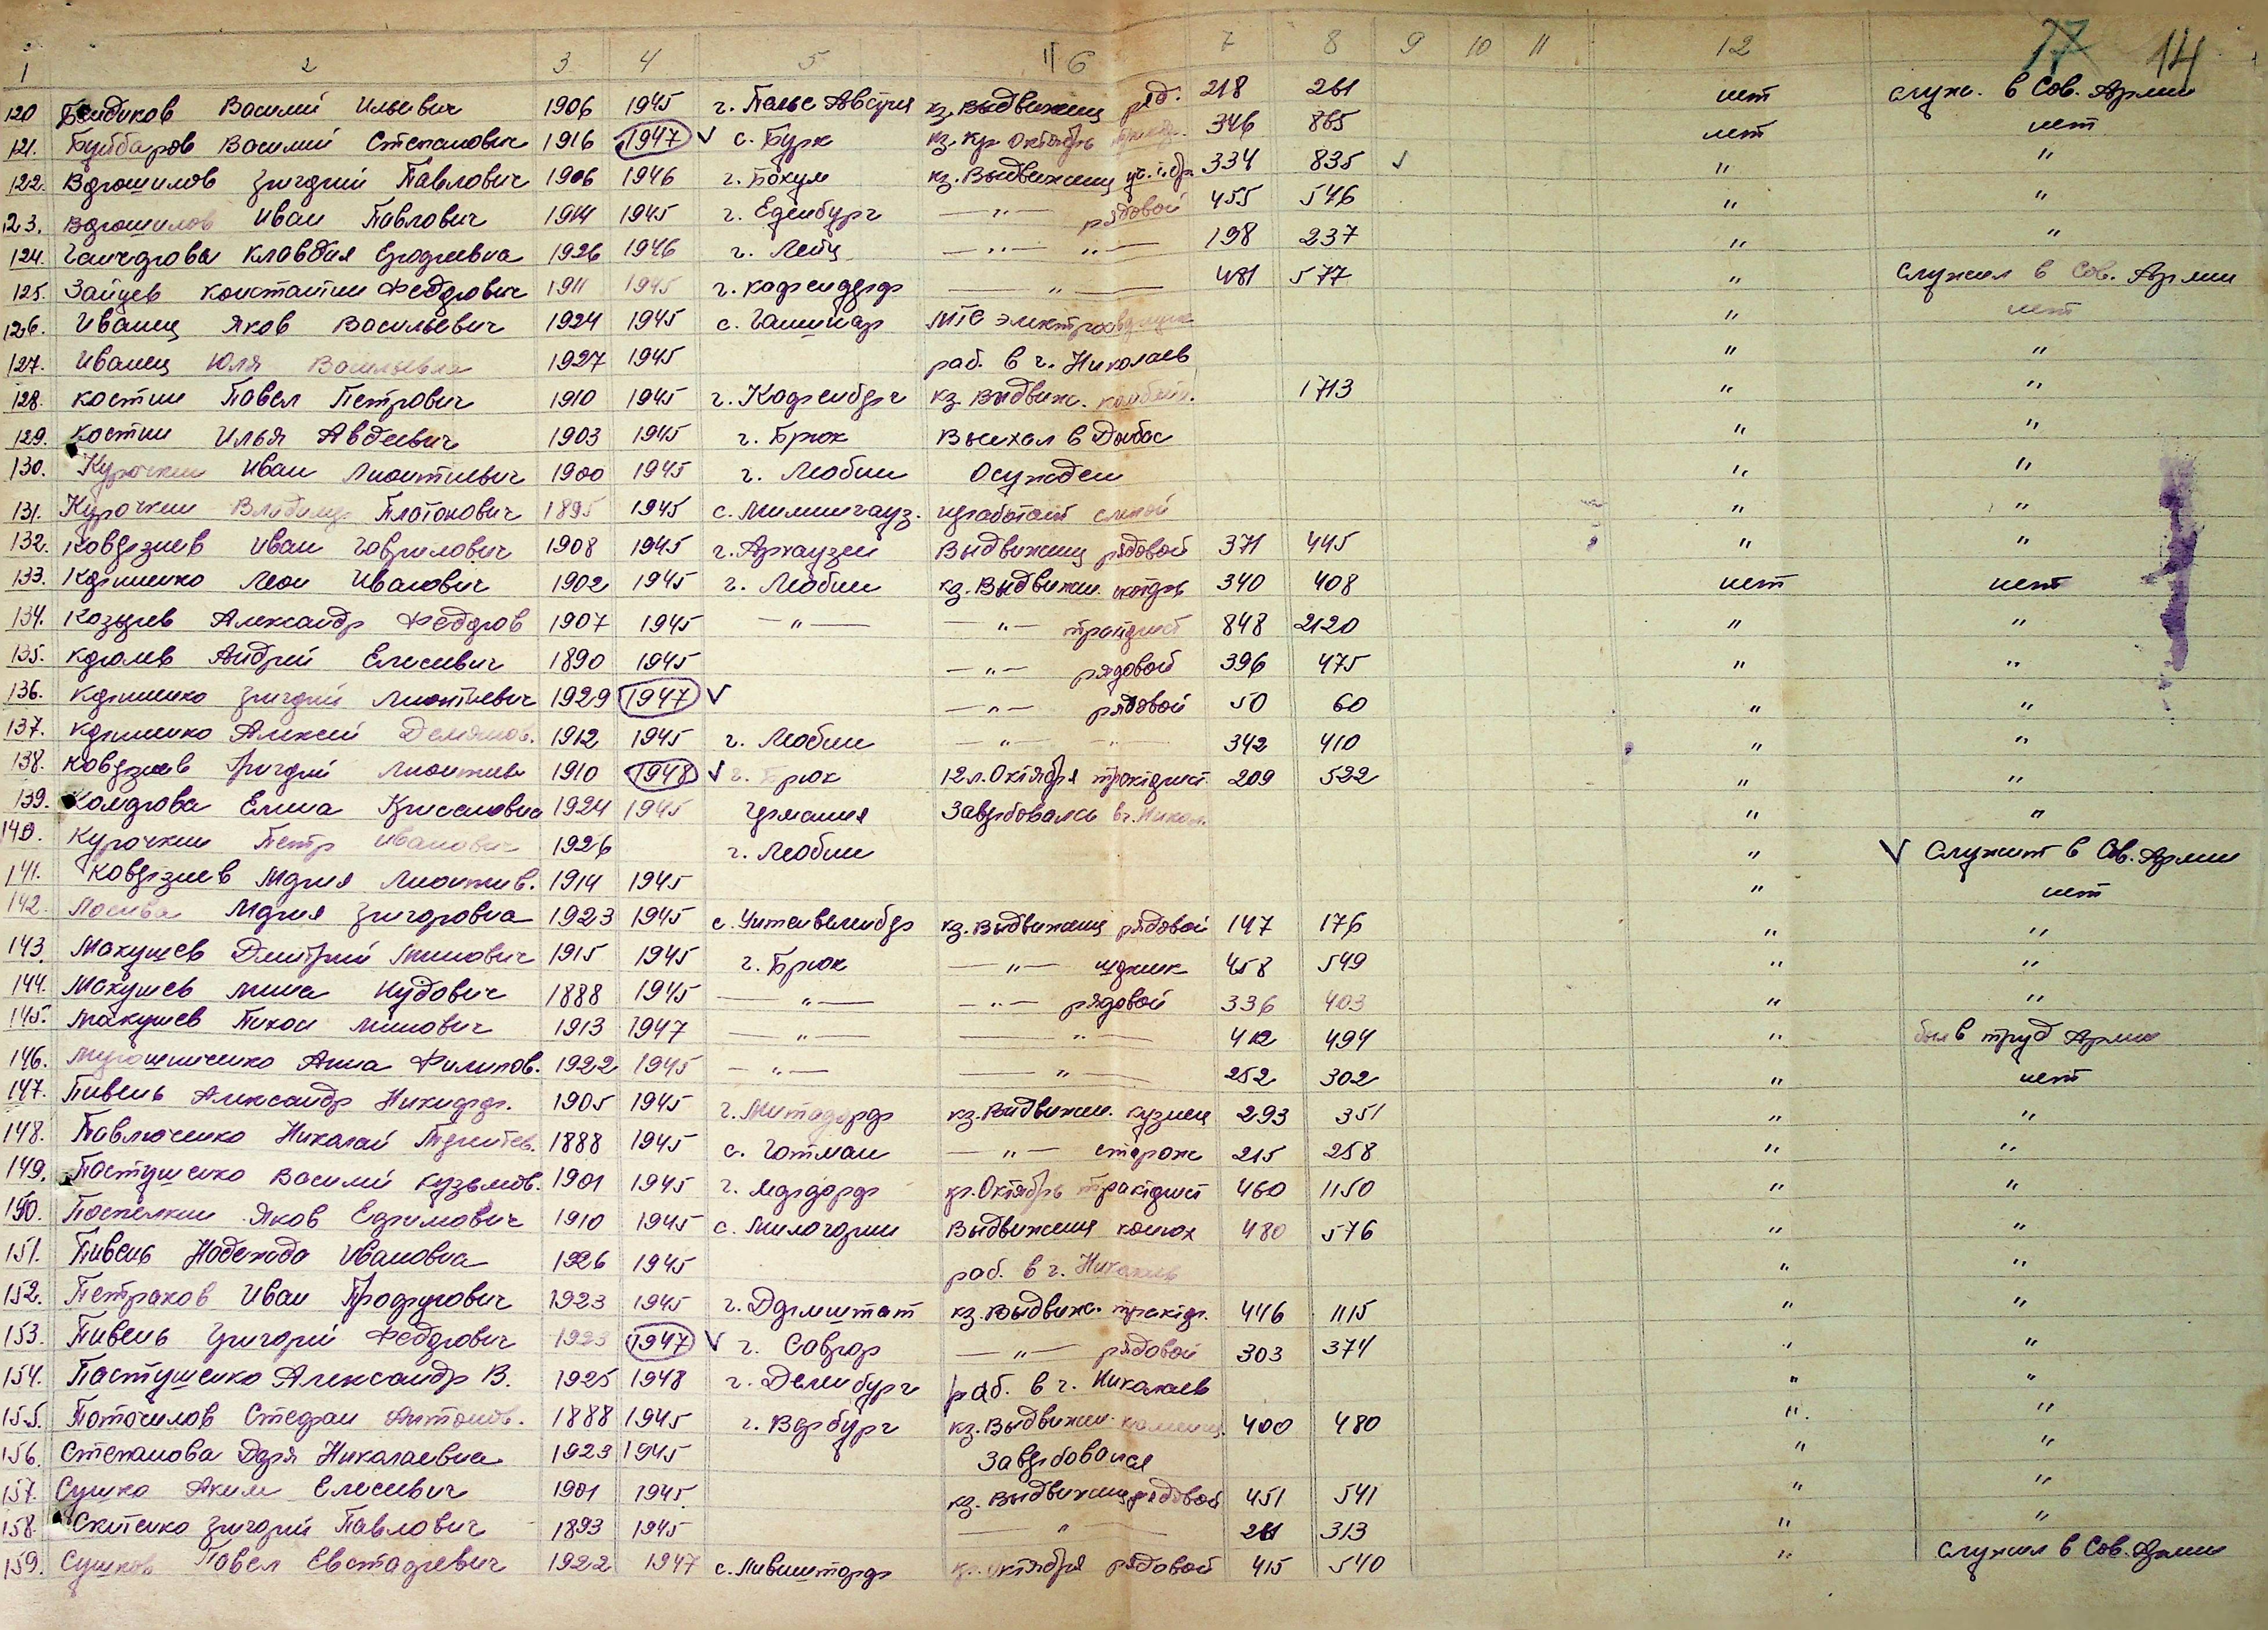 17 14
1 2 3 4 5 6 7 8 9 10 11 12
120 Бейдиков Василий Ильевич 1906 1945 г. Пальс Австрия кз. Выдвиженец ряд. 218 261 нет служ. в Сов. Армии
121. Буйбаров Василий Степанович 1916 1947 ✓ с. Бурк кз. Кр Октябрь 346 865 нет нет
122. Ворошилов Григорий Павлович 1906 1946 г. Бохум кз. Выдвиженец 334 835 ✓ " "
123. Ворошилов Иван Павлович 1914 1945 г. Еденбург —"— рядовой 455 546 " "
124. Гончарова Клавдия Егоровна 1926 1946 г. Лейц —"— "— 198 237 " "
125. Зайцев Константин Федорович 1911 1945 г. Кафендорф —"— 481 577 " Служил в Сов. Армии
126. Иванец Яков Васильевич 1924 1945 с. МТС " нет
127. Иванец Юля Васильевна 1927 1945 раб. в г. Николаев " "
128. Костин Павел Петрович 1910 1945 г. Кафенберг кз. Выдвиж. комбайн. 1713 " "
129. Костин Илья Авдеевич 1903 1945 г. Брюк Выехал в Донбас " "
130. Курочкин Иван Леонтиевич 1900 1945 г. Леобин Осужден " "
131. Курочкин Владимир Платонович 1895 1945 с. Мильнигауз. слепой " "
132. Коврзнев Иван Гаврилович 1908 1945 г. Архаузен Выдвиженец рядовой 371 445 " "
133. Корниенко Леон Иванович 1902 1945 г. Леобин кз. Выдвижен. 340 408 нет нет
134. Козырев Александр Федоров 1907 1945 —"— —"— 848 2120 " "
135. Королев Андрей Елисеевич 1890 1945 —"— рядовой 396 475 " "
136. Корниенко Григорий Леонтиевич 1929 1947 ✓ —"— рядовой 50 60 " "
137. Корниенко Алексей Демянов. 1912 1945 г. Леобин —"— " 342 410 " "
138. Коврзнев Григорий Леонтиев 1910 1948 ✓ г. Брюк 12 л. Октября тракторист. 209 522 " "
139. Комарова Елена Крисановна 1924 1945 Германия Завербовалась в г. Никол. " "
140. Курочкин Петр Иванович 1926 г. Леобин " ✓ Служит в Сов. Армии
141. Коврзнев Мария Леонтив. 1914 1945 " нет
142. Лосева Мария Григоровна 1923 1945 с. кз. Выдвиженец рядовой 147 176 " "
143. Макушев Дмитрий Минович 1915 1945 г. Брюк —"— 458 549 " "
144. Макушев Мина Иудович 1888 1945 —"— —"— рядовой 336 403 " "
145. Макушев Тихон Минович 1913 1947 —"— —"— 412 494 " был в труд Армии
146. Мирошниченко Анна Филипов. 1922 1945 —"— —"— 252 302 " нет
147. Пивень Александр Никифор. 1905 1945 г. Митадорф кз. Выдвижен. кузнец 293 351 " "
148. Павлюченко Николай Терентев. 1888 1945 с. Готман —"— сторож 215 258 " "
149. Пастушенко Василий Кузьмов. 1901 1945 г. кр. Октябрь тракторист 460 1150 " "
150. Поспелкин Яков Ефимович 1910 1945 с. Выдвиженец конюх 480 576 " "
151. Пивень Надежда Ивановна 1926 1945 раб. в г. Николаев " "
152. Петраков Иван Профирович 1923 1945 г. Дармштат кз. Выдвиж. трактор. 446 1115 " "
153. Пивень Григорий Федорович 1923 1947 ✓ г. —"— рядовой 303 374 " "
154. Пастушенко Александр В. 1925 1948 г. Деленбург раб. в г. Николаев " "
155. Поточилов Стефан Антонов. 1888 1945 г. Варбург кз. Выдвижен. каменщ. 400 480 " "
156. Степанова Даря Николаевна 1923 1945 Завербовался " "
157. Сушко Аким Елисеевич 1901 1945. кз. Выдвиженец рядовой 451 541 " "
158. Скитенко Григорий Павлович 1893 1945 —"— 261 313 " "
159. Сушков Павел Евстафевич 1922 1947 с. Ливиштарф кр. Октября рядовой 415 540 " служил в Сов. Армии